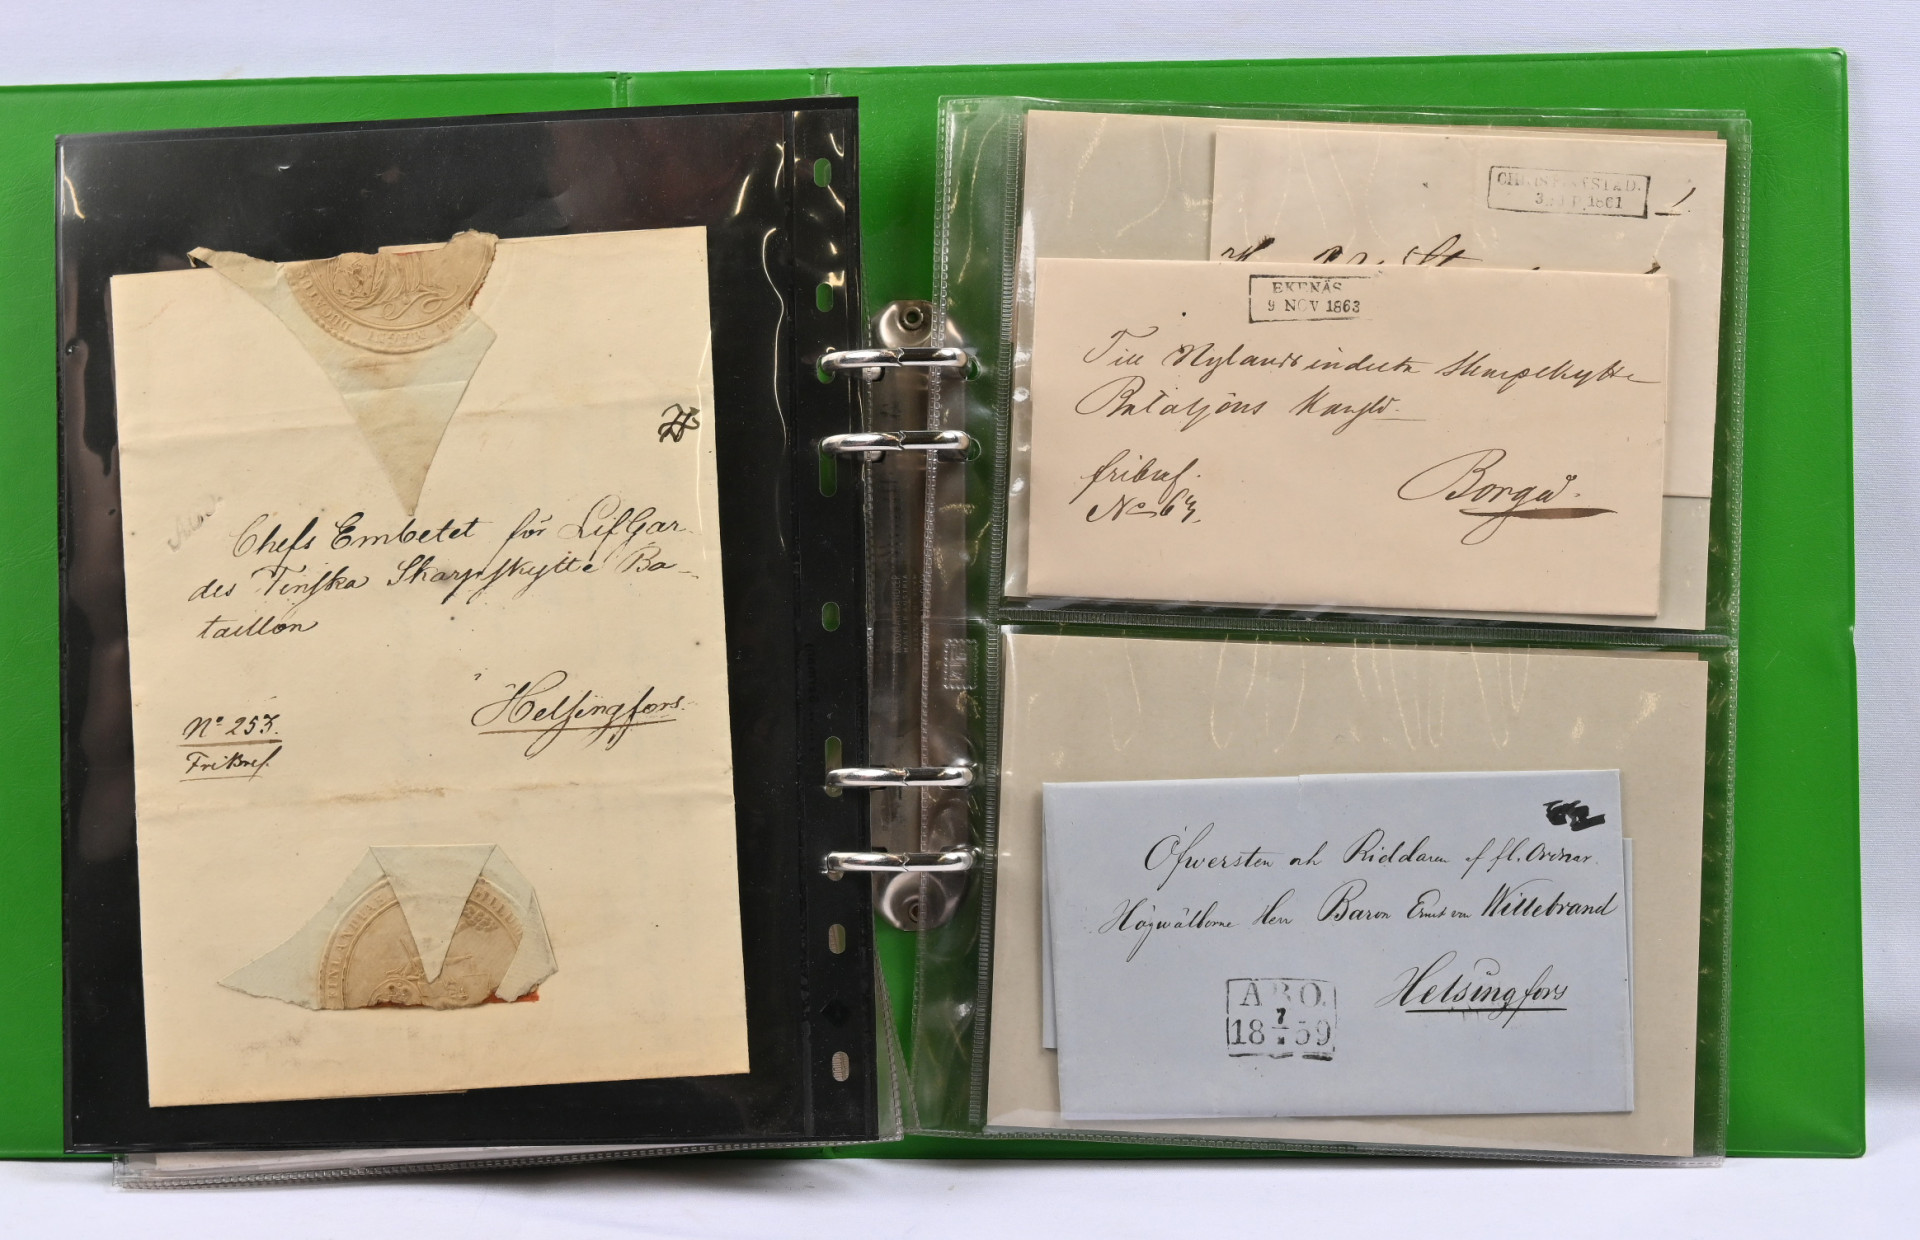 Chefs Embetet för LifGar-
des Finska Skarpskytte Ba-
taillon
Helsingfors.
No 253.
Fribref.
CHRISTINESTAD.
1861
EKENÄS
9 NOV 1863
Till Nylands indelta Skarpskytte
Bataljons Kansli.
fribref.
No 63.
Borgå.
Öfwersten och Riddaren af fl. Ordnar
Högwälborne Herr Baron Ernst von Willebrand
Helsingfors
ÅBO.
18 7 59